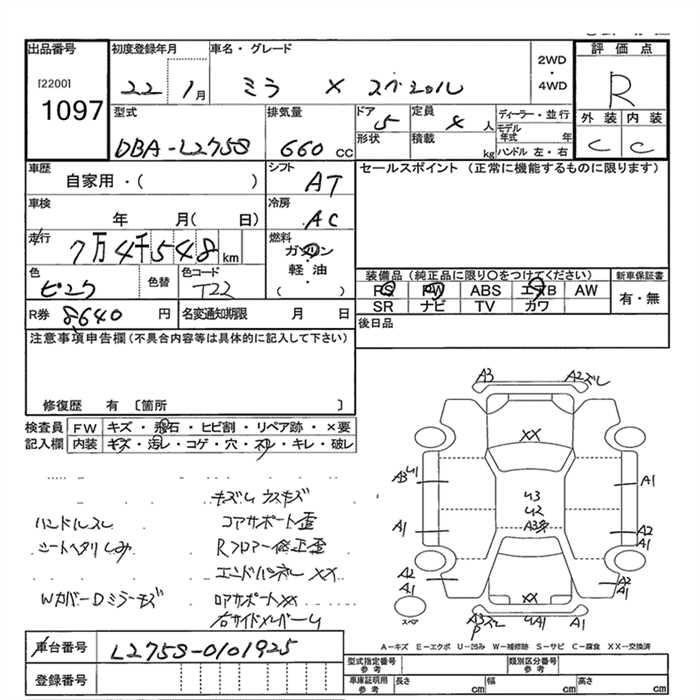 出品番号
[2200]
1097
初度登録年月
22 1月
車名・グレード
ミラ X スペシャル
2WD
・
4WD
評価点
R
外装 内装
C C
型式
DBA-L275S
排気量
660 cc
ドア
5
形状
定員
4 人
積載
kg
ディーラー・並行
モデル
年式 年
ハンドル 左・右
車歴
自家用・( )
シフト
AT
セールスポイント (正常に機能するものに限ります)
車検
年 月( 日)
冷房
AC
走行
7万4千548 km
燃料
ガソリン
軽・油
( )
色
ピンク
色替
色コード
T22
装備品(純正品に限り〇をつけてください)
PS PW ABS エアB AW
SR ナビ TV カワ
新車保証書
有・無
R券 8,640 円
名変通知期限 月 日
後日品
注意事項申告欄(不具合内容等は具体的に記入して下さい)
修復歴 有 〔箇所 〕
検査員
記入欄
FW キズ・飛石・ヒビ割・リペア跡・×要
内装 キズ・汚レ・コゲ・穴・スレ・キレ・破レ
ハンドルスレ
シートヘタリしみ
WカバーDミラーキズ
コアサポート歪
Rフロアー修正歪
エンドパネルXX
ロアサポートXX
右サイドメンバーU
A3
A2ズレ
XX
A3 U1
A1
U3
U2
A1
A2
A1
A1
A2
A1
A2
A1
XX
A3ズレ
P
U1
A1
スペア
A-キズ E-エクボ U-凹み W-補修跡 S-サビ C-腐食 XX-交換済
車台番号
L275S-0101925
登録番号
型式指定番号
参考
類別区分番号
参考
車庫証明用
参考
長さ cm
幅 cm
高さ cm